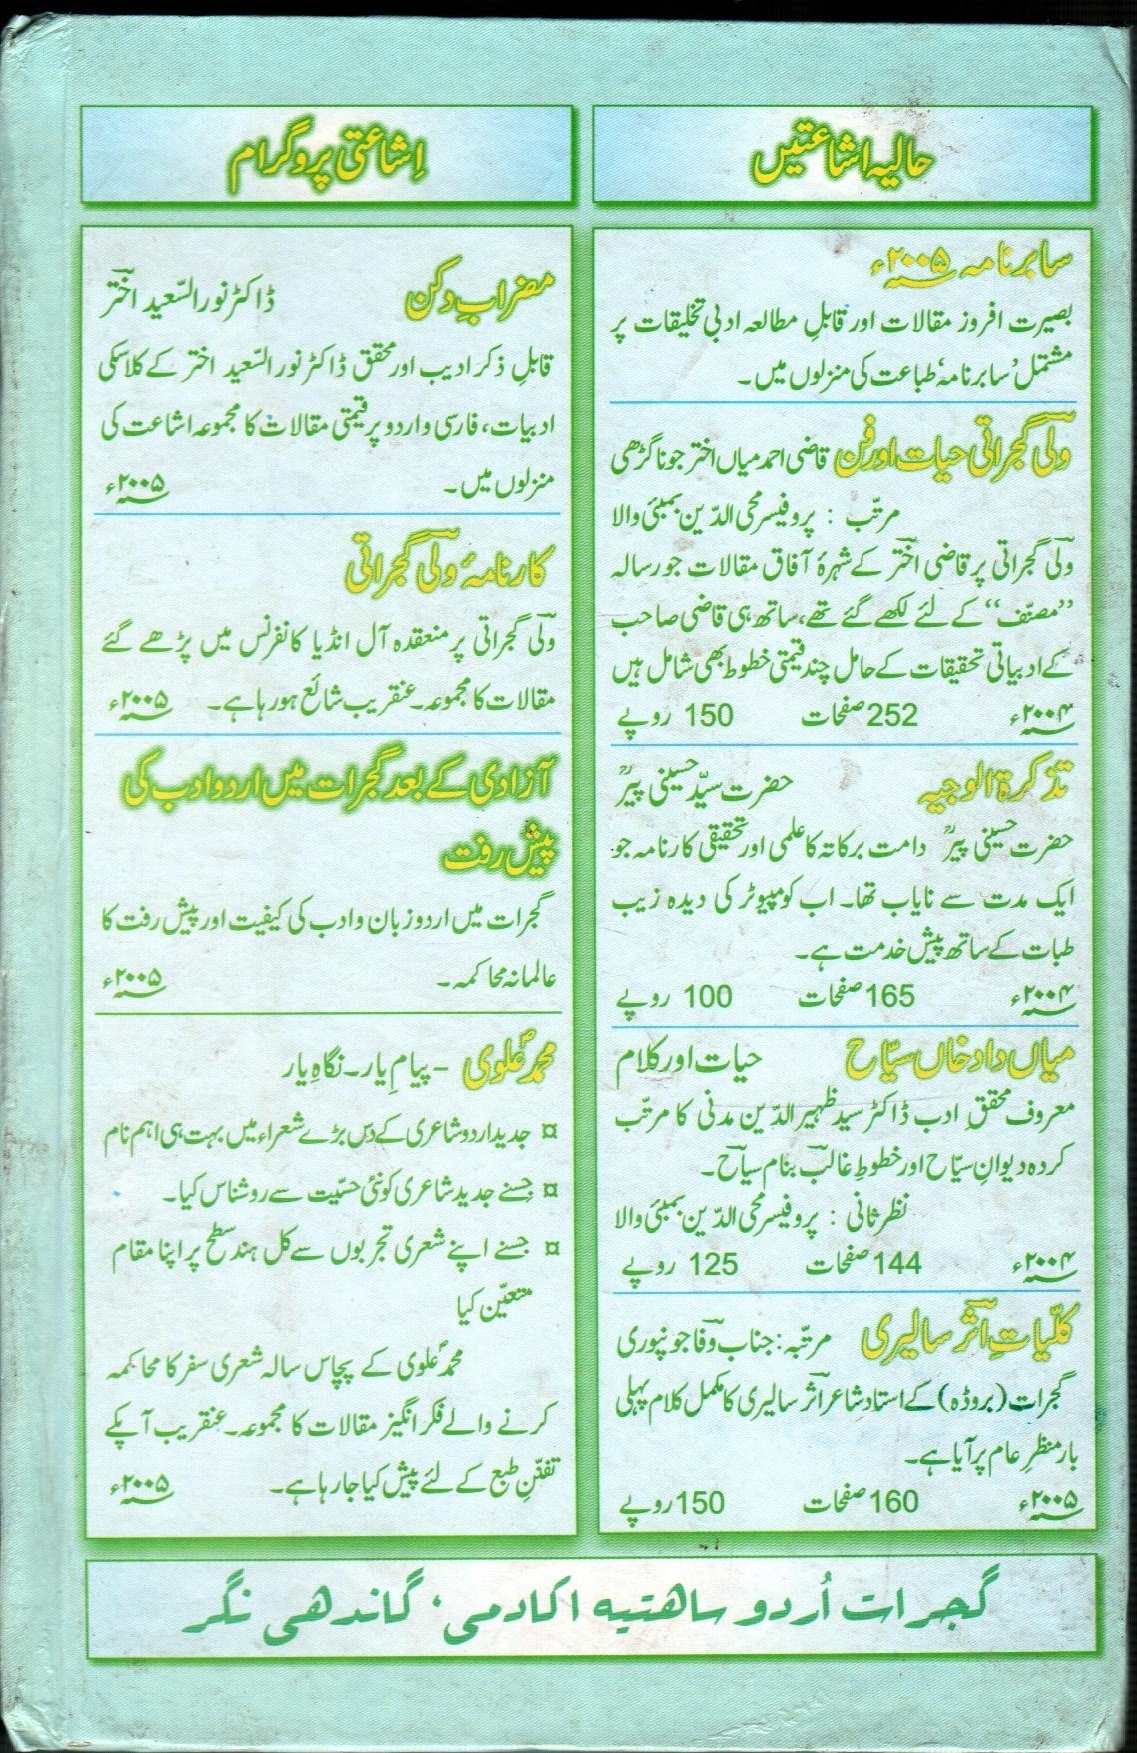 حالیہ اشاعتیں
سابرنامہ ۲۰۰۵ء
بصیرت افروز مقالات اور قابلِ مطالعہ ادبی تخلیقات پر
مشتمل ’سابرنامہ‘ طباعت کی منزلوں میں۔
ولیؔ گجراتی حیات اور فن قاضی احمد میاں اختر جوناگڑھی
مرتّب : پروفیسر محی الدّین بمبئی والا
ولیؔ گجراتی پر قاضی اخترؔ کے شہرۂ آفاق مقالات جو رسالہ
”مصنّف“ کے لئے لکھے گئے تھے، ساتھ ہی قاضی صاحب
کے ادبیاتی تحقیقات کے حامل چند قیمتی خطوط بھی شامل ہیں
۲۰۰۴ء 252 صفحات 150 روپے
تذکرۃ الوجیہ حضرت سیّد حسینی پیرؒ
حضرت حسینی پیرؒ دامت برکاتہ کا علمی اور تحقیقی کارنامہ جو
ایک مدت سے نایاب تھا۔ اب کومپیوٹر کی دیدہ زیب
طبات کے ساتھ پیش خدمت ہے۔
۲۰۰۴ء 165 صفحات 100 روپے
میاں داد خاں سیّاح حیات اور کلام
معروف محققِ ادب ڈاکٹر سید ظہیر الدّین مدنی کا مرتّب
کردہ دیوانِ سیّاح اور خطوطِ غالبؔ بنام سیاؔح۔
نظر ثانی : پروفیسر محی الدّین بمبئی والا
۲۰۰۴ء 144 صفحات 125 روپے
کلّیاتِ اثرؔ سالیری مرتّبہ: جناب وفاؔ جونپوری
گجرات (بروڈہ) کے استاد شاعر اثرؔ سالیری کا مکمل کلام پہلی
بار منظرِ عام پر آیا ہے۔
۲۰۰۵ء 160 صفحات 150 روپے
اِشاعتی پروگرام
مضرابِ دکن ڈاکٹر نور السّعید اخترؔ
قابلِ ذکر ادیب اور محقق ڈاکٹر نور السّعید اختر کے کلاسکی
ادبیات، فارسی و اردو پر قیمتی مقالات کا مجموعہ اشاعت کی
منزلوں میں۔ ۲۰۰۵ء
کارنامۂ ولیؔ گجراتی
ولیؔ گجراتی پر منعقدہ آل انڈیا کانفرنس میں پڑھے گئے
مقالات کا مجموعہ۔ عنقریب شائع ہو رہا ہے۔ ۲۰۰۵ء
آزادی کے بعد گجرات میں اردو ادب کی
پیش رفت
گجرات میں اردو زبان و ادب کی کیفیت اور پیش رفت کا
عالمانہ محاکمہ۔ ۲۰۰۵ء
محمدؐ علوی - پیامِ یار۔ نگاہِ یار
¤ جدید اردو شاعری کے دس بڑے شعراء میں بہت ہی اہم نام
¤ جسنے جدید شاعری کو نئی حسّیت سے روشناس کیا۔
¤ جسنے اپنے شعری تجربوں سے کل ہند سطح پر اپنا مقام
متعیّن کیا
محمدؐ علوی کے پچاس سالہ شعری سفر کا محاکمہ
کرنے والے فکر انگیز مقالات کا مجموعہ۔ عنقریب آپکے
تفنّنِ طبع کے لئے پیش کیا جا رہا ہے۔ ۲۰۰۵ء
گجرات اُردو ساھتیہ اکادمی، گاندھی نگر